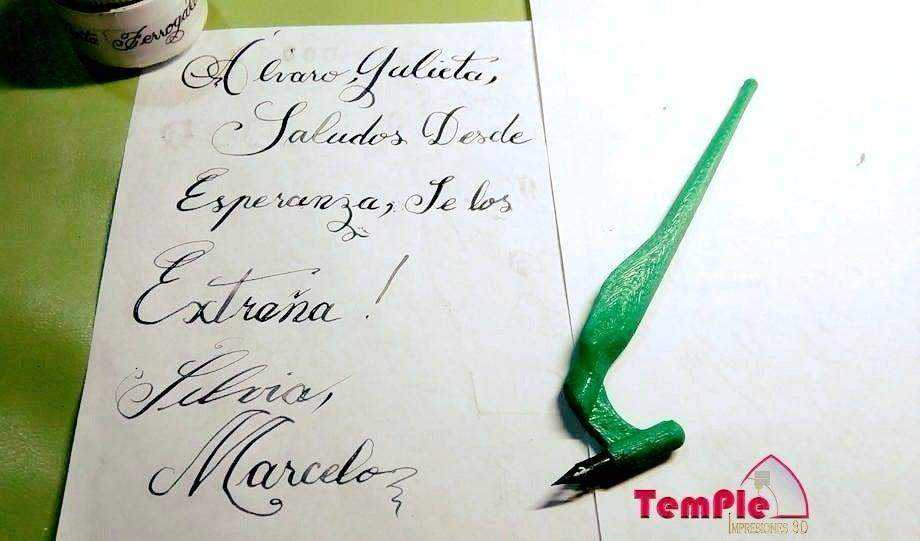 Ferrogal
Álvaro, Julieta,
Saludos Desde
Esperanza, Se los
Extraña!
Silvia,
Marcelo
TemPle
IMPRESIONES 3D